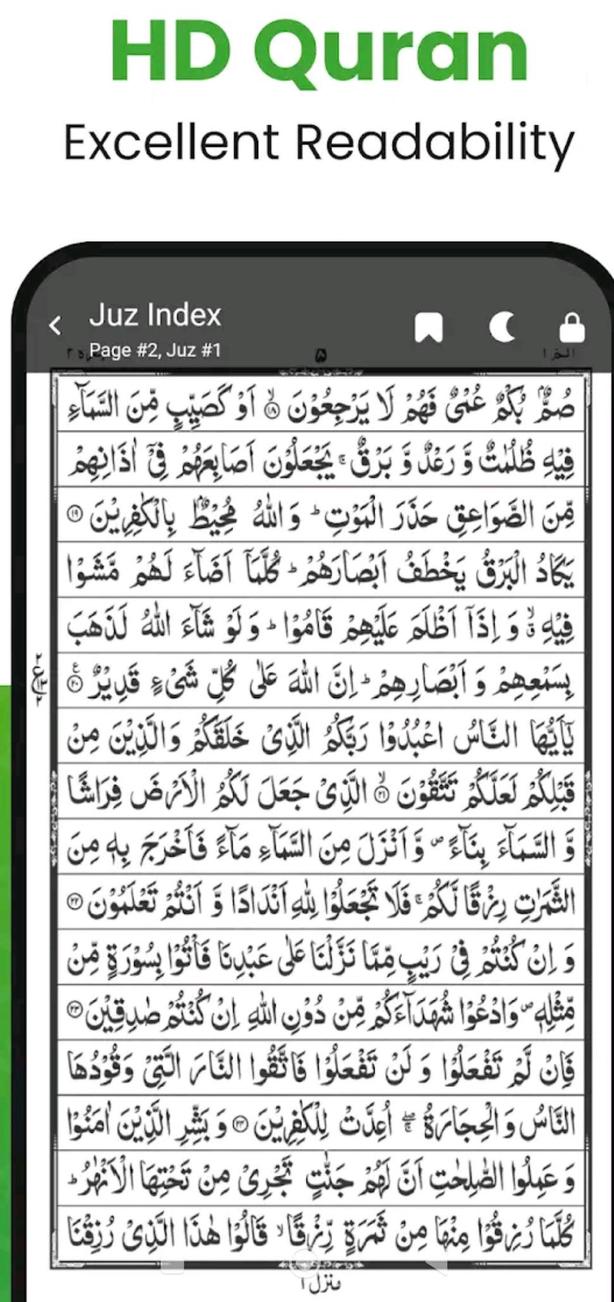 HD Quran
Excellent Readability
Juz Index
Page #2, Juz #1
۵
الٓمّٓ ١
صُمٌّۢ بُكْمٌ عُمْیٌ فَهُمْ لَا یَرْجِعُوْنَ ۙ۝۱۸ اَوْ كَصَیِّبٍ مِّنَ السَّمَآءِ
فِیْهِ ظُلُمٰتٌ وَّ رَعْدٌ وَّ بَرْقٌ ۚ یَجْعَلُوْنَ اَصَابِعَهُمْ فِیْۤ اٰذَانِهِمْ
مِّنَ الصَّوَاعِقِ حَذَرَ الْمَوْتِ ؕ وَ اللّٰهُ مُحِیْطٌۢ بِالْكٰفِرِیْنَ ۝۱۹
یَكَادُ الْبَرْقُ یَخْطَفُ اَبْصَارَهُمْ ؕ كُلَّمَاۤ اَضَآءَ لَهُمْ مَّشَوْا
فِیْهِ ۙۗ وَ اِذَاۤ اَظْلَمَ عَلَیْهِمْ قَامُوْا ؕ وَ لَوْ شَآءَ اللّٰهُ لَذَهَبَ
بِسَمْعِهِمْ وَ اَبْصَارِهِمْ ؕ اِنَّ اللّٰهَ عَلٰی كُلِّ شَیْءٍ قَدِیْرٌ ۝۲۰
یٰۤاَیُّهَا النَّاسُ اعْبُدُوْا رَبَّكُمُ الَّذِیْ خَلَقَكُمْ وَ الَّذِیْنَ مِنْ
قَبْلِكُمْ لَعَلَّكُمْ تَتَّقُوْنَ ۙ۝۲۱ الَّذِیْ جَعَلَ لَكُمُ الْاَرْضَ فِرَاشًا
وَّ السَّمَآءَ بِنَآءً ۪ وَّ اَنْزَلَ مِنَ السَّمَآءِ مَآءً فَاَخْرَجَ بِهٖ مِنَ
الثَّمَرٰتِ رِزْقًا لَّكُمْ ۚ فَلَا تَجْعَلُوْا لِلّٰهِ اَنْدَادًا وَّ اَنْتُمْ تَعْلَمُوْنَ ۝۲۲
وَ اِنْ كُنْتُمْ فِیْ رَیْبٍ مِّمَّا نَزَّلْنَا عَلٰی عَبْدِنَا فَاْتُوْا بِسُوْرَةٍ مِّنْ
مِّثْلِهٖ ۪ وَ ادْعُوْا شُهَدَآءَكُمْ مِّنْ دُوْنِ اللّٰهِ اِنْ كُنْتُمْ صٰدِقِیْنَ ۝۲۳
فَاِنْ لَّمْ تَفْعَلُوْا وَ لَنْ تَفْعَلُوْا فَاتَّقُوا النَّارَ الَّتِیْ وَقُوْدُهَا
النَّاسُ وَ الْحِجَارَةُ ۖۚ اُعِدَّتْ لِلْكٰفِرِیْنَ ۝۲۴ وَ بَشِّرِ الَّذِیْنَ اٰمَنُوْا
وَ عَمِلُوا الصّٰلِحٰتِ اَنَّ لَهُمْ جَنّٰتٍ تَجْرِیْ مِنْ تَحْتِهَا الْاَنْهٰرُ ؕ
كُلَّمَا رُزِقُوْا مِنْهَا مِنْ ثَمَرَةٍ رِّزْقًا ۙ قَالُوْا هٰذَا الَّذِیْ رُزِقْنَا
منزل ۱